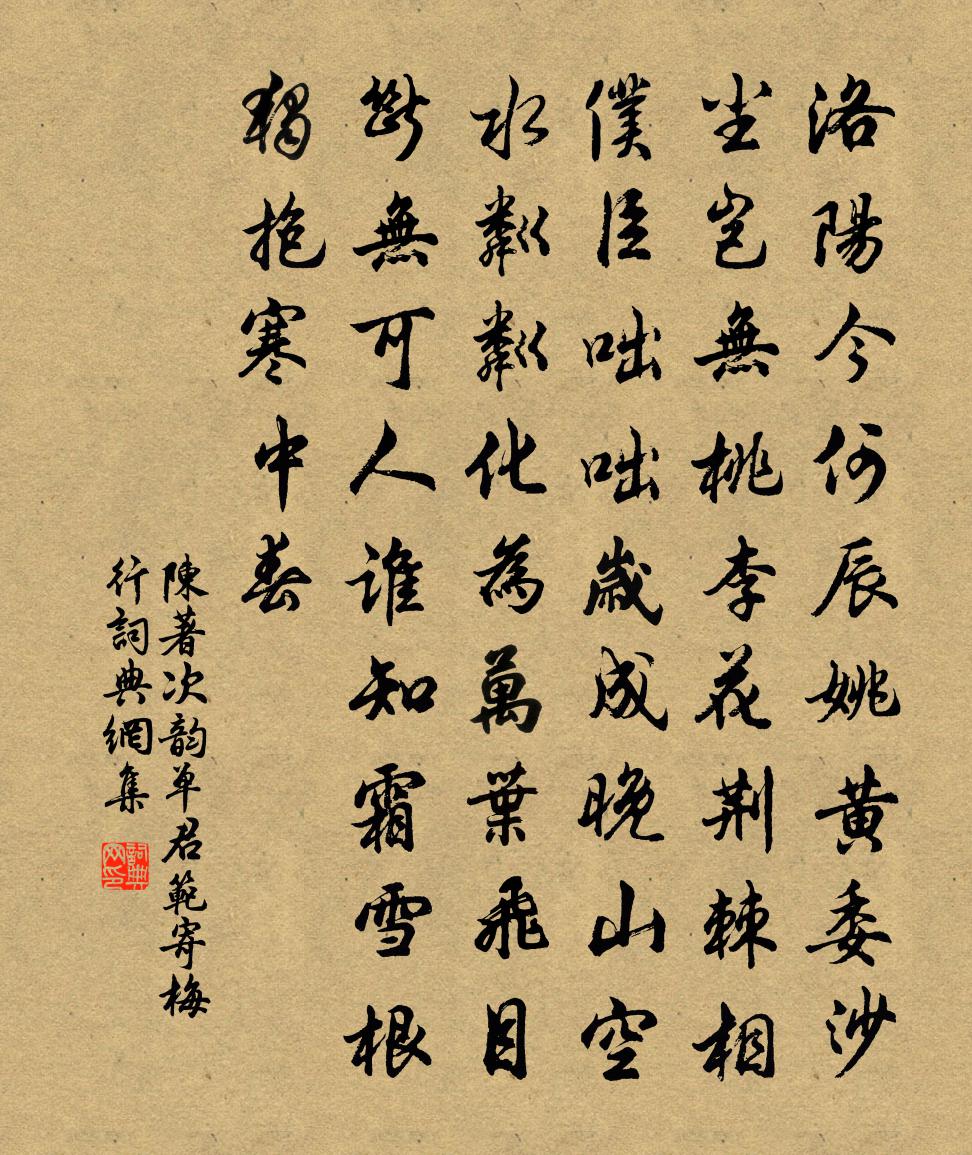 洛陽今何辰姚黄委沙
尘岂無桃李花荆棘相
僕臣咄咄歲成晚山空
水粼粼化為萬葉飛目
斷無可人誰知霜雪根
獨抱寒中春
陳著次韵单君範寄梅
行詞典網集
詞典
网印